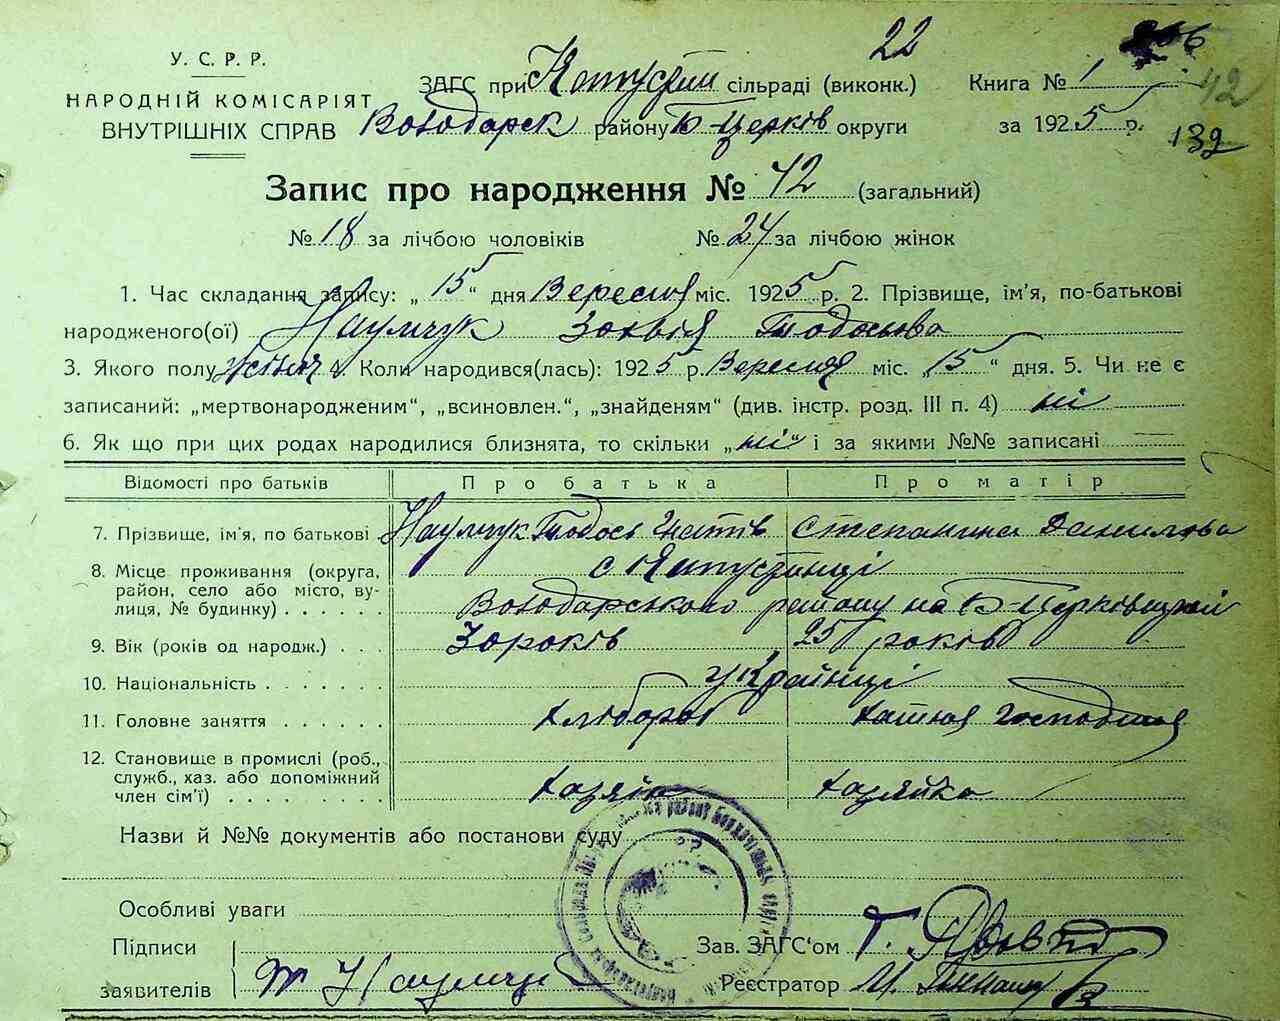 У. С. Р. Р.
НАРОДНІЙ КОМІСАРІЯТ
ВНУТРІШНІХ СПРАВ
22
ЗАГС при сільраді (виконк.) Книга № 1
42
Володарск району Б-Церків округи за 1925 р.
132
Запис про народження № 42 (загальний)
№ 18 за лічбою чоловіків № 24 за лічбою жінок
1. Час складання запису: „ 15 “ дня Вересня міс. 1925 р. 2. Прізвище, ім’я, по-батькові
народженого(ої) Наумчук Зохвія Тодосьова
3. Якого полу жіноч 4. Коли народився(лась): 1925 р. Вересня міс. „ 15 “ дня. 5. Чи не є
записаний: „мертвонародженим“, „всиновлен.“, „знайденям“ (див. інстр. розд. III п. 4) ні
6. Як що при цих родах народилися близнята, то скільки „ ні “ і за якими №№ записані
Відомості про батьків Про батька Про матір
7. Прізвище, ім’я, по батькові Наумчук Тодось Степанина Данилова
8. Місце проживання (округа, район, село або місто, вулиця, № будинку)
с Капустинці
Володарського району на Б-Церківщині
9. Вік (років од народж.) 30 років 25 років
10. Національність Українці
11. Головне заняття хлібороб хатня господиня
12. Становище в промислі (роб., служб., хаз. або допоміжний член сім’ї) хазяїн хазяйка
Назви й №№ документів або постанови суду
Особливі уваги
Підписи
заявителів Т Наумчук
Зав. ЗАГС‘ом Г.
Реєстратор М.